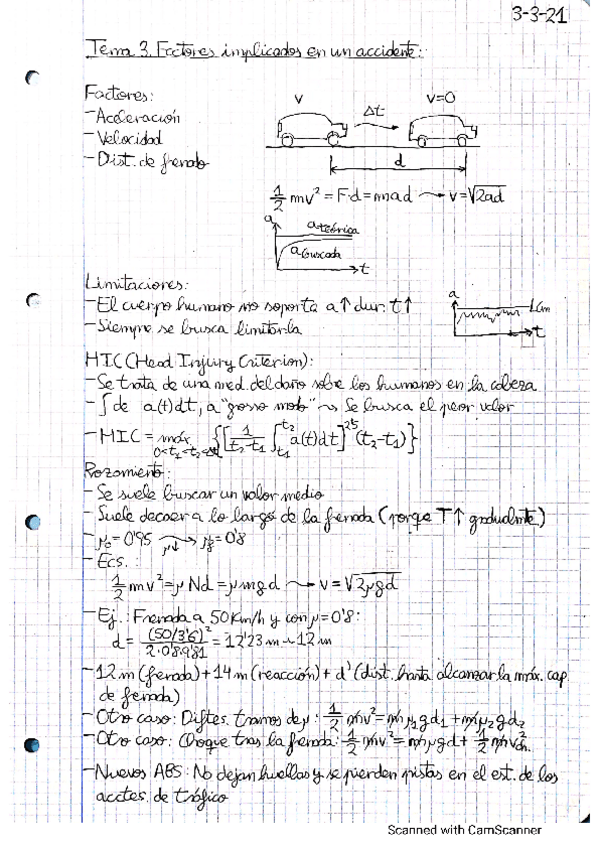 3-3-21
Tema 3. Factores implicados en un accidente:
Factores:
v Δt v=0
-Aceleración
-Velocidad
-Dist. de frenado
d
1/2 mv² = F·d = mad → v=√2ad
a
a teórica
a buscada
t
Limitaciones:
-El cuerpo humano no soporta a↑ dur. t↑
-Siempre se busca limitarla
a
Lím
t
HIC (Head Injury Criterion):
-Se trata de una med. del daño sobre los humanos en la cabeza
-∫ de a(t)dt, a "grosso modo" → Se busca el peor valor
-HIC = máx 0<t₁<t₂<Δt {[1/(t₂-t₁) ∫t₁t₂ a(t)dt]^2'5 (t₂-t₁)}
Rozamiento:
-Se suele buscar un valor medio
-Suele decaer a lo largo de la frenada (porque T↑ gradualmente)
-μ₀=0'95 → μ↓ =0'8
-Ecs.:
1/2 mv²=μNd=μmgd → v=√2μgd
-Ej.: Frenada a 50 Km/h y con μ=0'8:
d = (50/3'6)²/(2·0'8·9'81) = 12'23 m ~ 12 m
-12 m (frenada) + 14 m (reacción) + d' (dist. hasta alcanzar la máx. cap.
de frenada)
-Otro caso: Diftes. tramos de μ: 1/2 mv² = mμ₁gd₁ + mμ₂gd₂
-Otro caso: Choque tras la frenada: 1/2 mv² = mμgd + 1/2 mv²ch.
-Nuevos ABS: No dejan huellas y se pierden pistas en el est. de los
acctes. de tráfico
Scanned with CamScanner